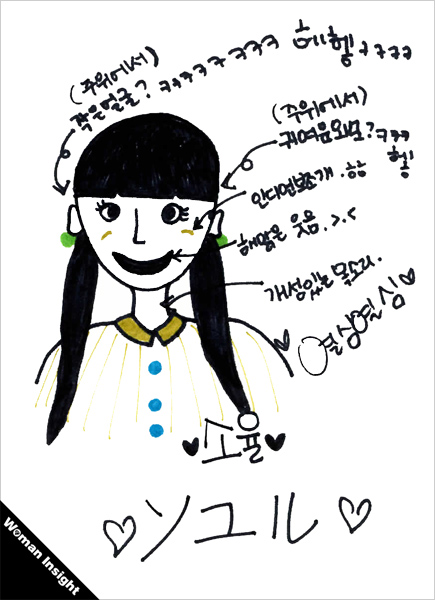 (주위에서)
작은얼굴? ㅋㅋㅋㅋㅋㅋㅋ 헤헹ㅋㅋㅋㅋ
(주위에서)
귀여운외모? ㅋㅋㅋ
헹
인디언보조개. 흠흠
해맑은 웃음. >.<
개성있는 목소리.
열심열심♡
♥소율♥
♡ソユル♡
Woman Insight